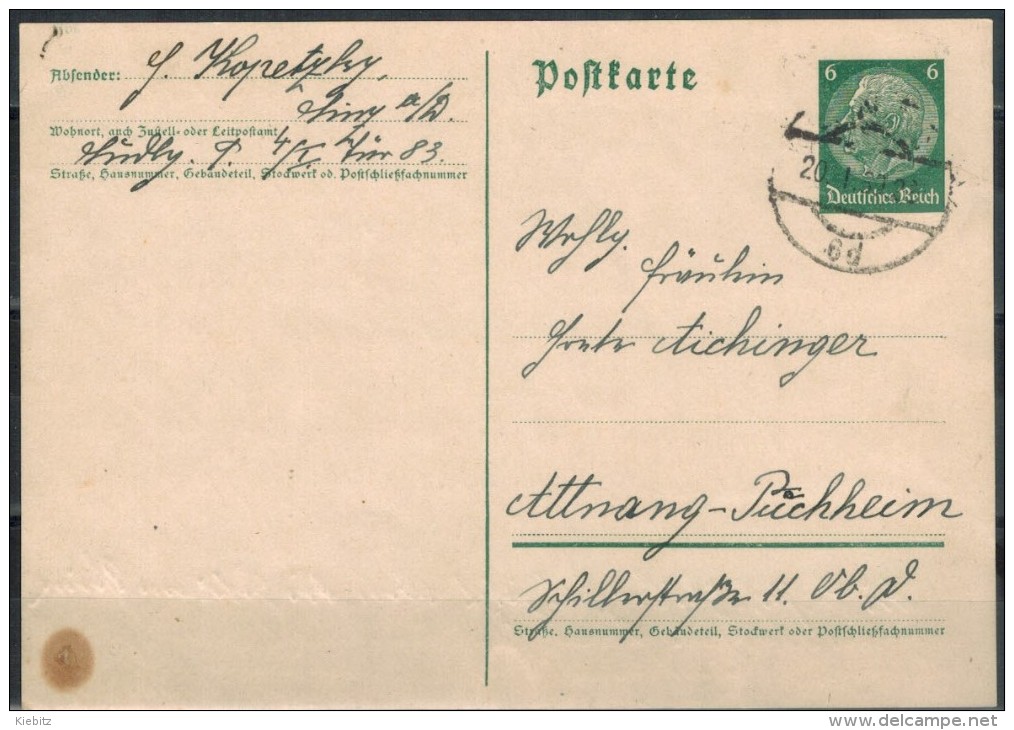 Absender: J. Kopetzky,
Linz a/D.
Wohnort, auch Zustell- oder Leitpostamt
4/I Tür 83.
Straße, Hausnummer, Gebäudeteil, Stockwerk od. Postschließfachnummer
Postkarte
6 6
Deutsches Reich
20
Wohlg.
Fräulein
Grete Aichinger
Attnang-Puchheim
Schillerstraße 11. Ob. D.
Straße, Hausnummer, Gebäudeteil, Stockwerk oder Postschließfachnummer
Kiebitz
www.delcampe.net